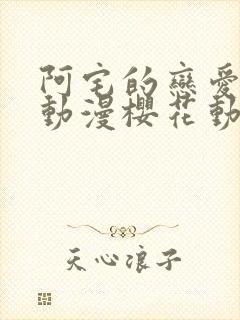 阿宅的戀愛
動漫櫻花動
天心浪子